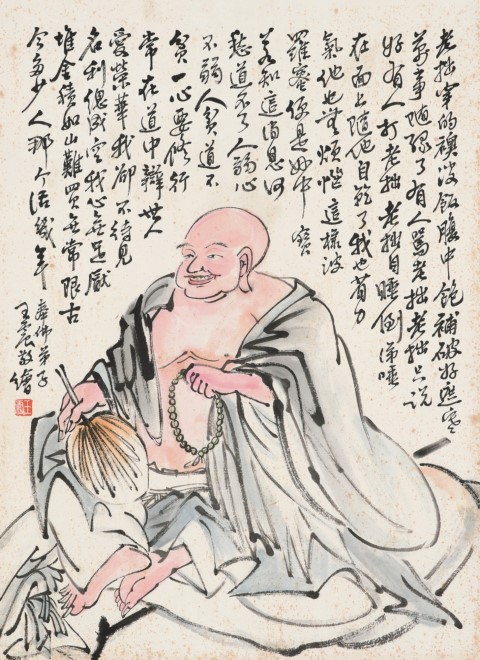 老拙穿的襖淡飯腹中飽補破好遮寒
萬事随緣了有人罵老拙老拙只說
好有人打老拙老拙自睡倒涕唾
在面上随他自乾了我也省力
氣他也無煩惱這樣波
羅蜜便是妙中寶
若知這消息何
愁道不了人弱心
不弱人貧道不
貧一心要修行
常在道中辦世人
愛榮華我卻不待見
名利總成空我心無足厭
堆金積如山難買無常限古
今多少人那个活幾年
奉佛弟子
王震敬繪